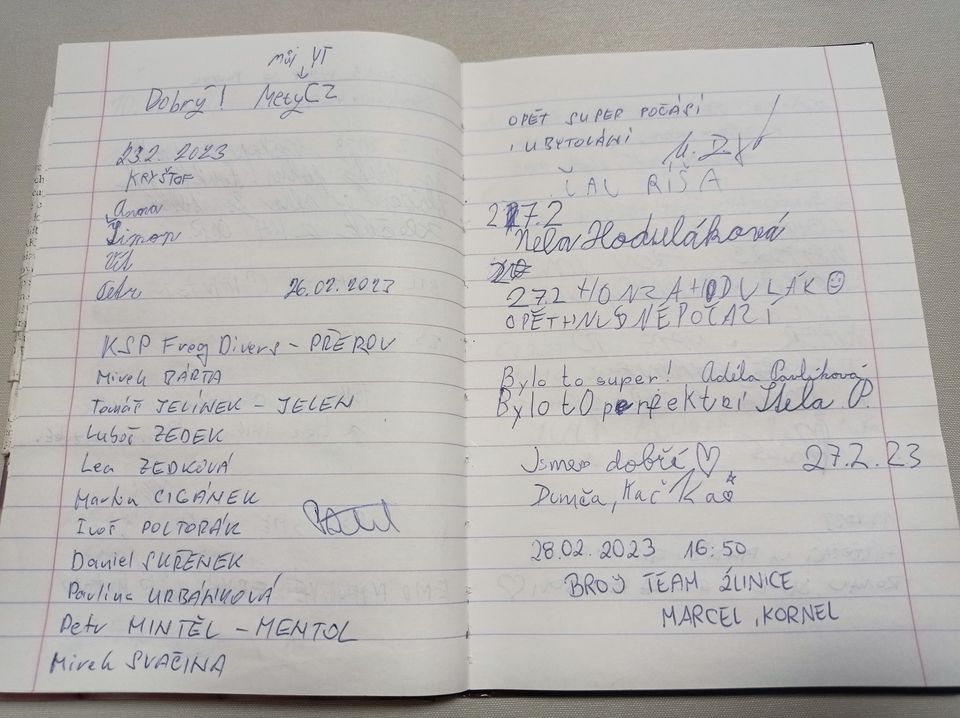 můj YT
Dobrý! MetyCZ
23.2. 2023
KRYŠTOF
Anna
Šimon
Vít
Petr 26.02.2023
KSP Frog Divers - PŘEROV
Mirek BÁRTA
Tomáš JELÍNEK - JELEN
Luboš ZEDEK
Lea ZEDKOVÁ
Martin CIGÁNEK
Ivoš POLTORÁK
Daniel SKŘENEK
Pavlína URBÁNKOVÁ
Petr MINTĚL - MENTOL
Mirek SVAČINA
OPĚT SUPER POČASÍ
I UBYTOVÁNÍ
RÍŠA
27.2
Nela Hoduláková
27.2 HONZA HODULÁK ☺
OPĚT HNUSNÉ POČAZÍ
Bylo to super! Adéla Pavlíková
Bylo tO perfektní Nela P.
Jsme dobřé ♡ 27.2.23
Dumča, Kač Ka
28.02.2023 16:50
BROĎ TEAM ŽLINICE
MARCEL, KORNEL